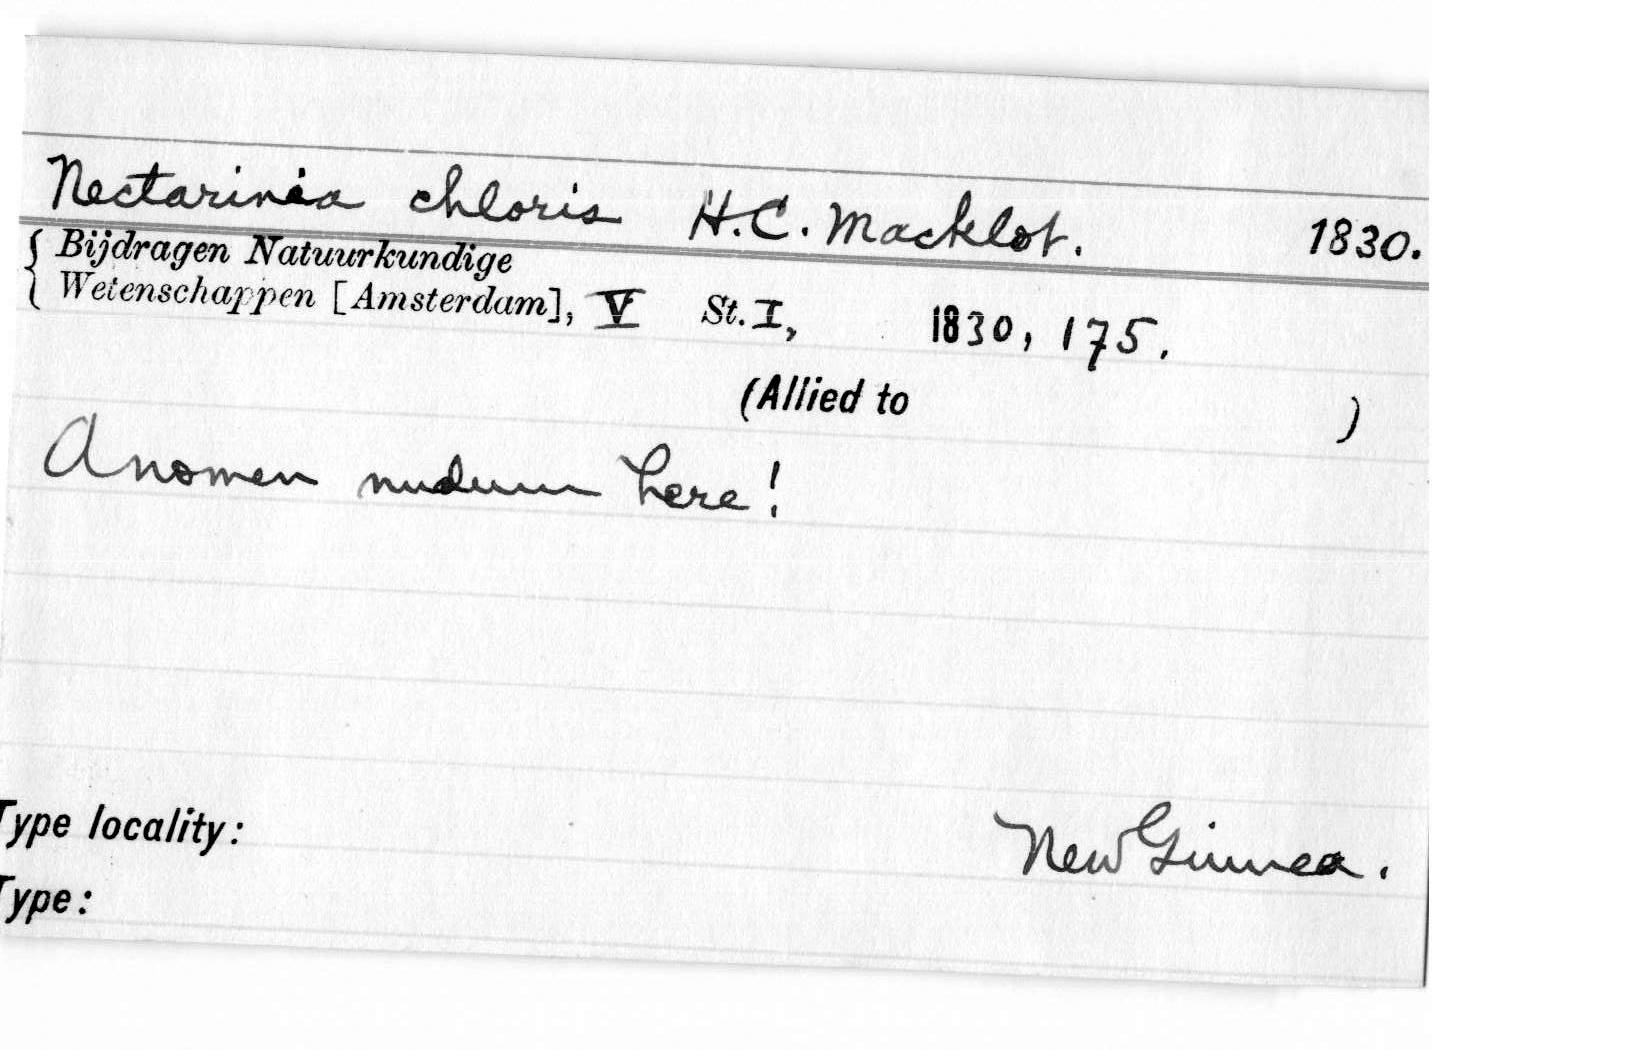 Nectarinia chloris H.C. Macklot. 1830.
{ Bijdragen Natuurkundige
Wetenschappen [Amsterdam], V St. I, 1830, 175.
(Allied to )
A nomen nudum here!
Type locality: New Guinea.
Type: